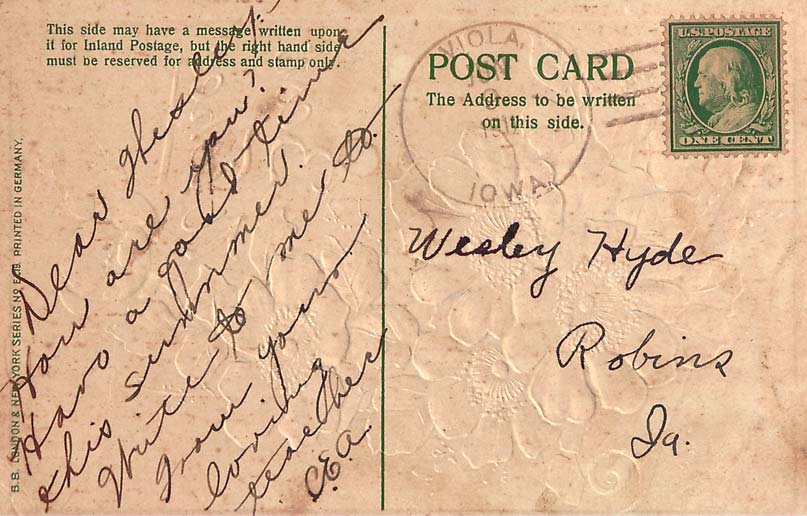 This side may have a message written upon
it for Inland Postage, but the right hand side
must be reserved for address and stamp only.
B.B. LONDON & NEW YORK SERIES No E219. PRINTED IN GERMANY.
Dear Wesley:
How are you?
Have a good time
this summer.
Write to me to.
From your
loving
teacher
C.E.A.
VIOLA,
IOWA
POST CARD
The Address to be written
on this side.
U.S. POSTAGE
ONE CENT
Wesley Hyde
Robins
Ia.